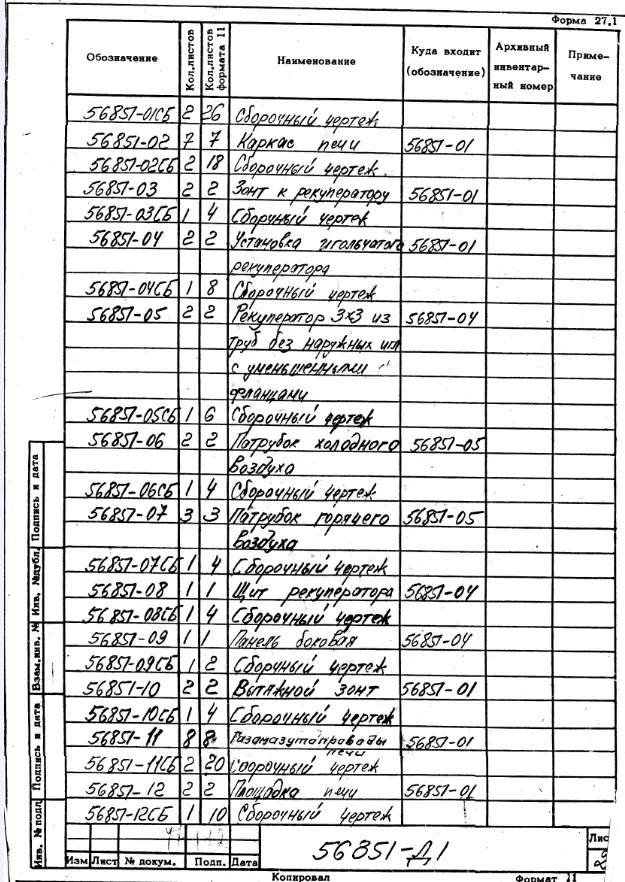 Форма 27.1
Обозначение Кол.листов Кол.листов формата 11 Наименование Куда входит (обозначение) Архивный инвентар-ный номер Приме-чание
56851-01СБ 2 26 Сборочный чертеж
56851-02 7 7 Каркас печи 56851-01
56851-02СБ 2 18 Сборочный чертеж.
56851-03 2 2 Зонт к рекуператору 56851-01
56851-03СБ 1 4 Сборочный чертеж
56851-04 2 2 Установка игольчатого 56851-01
рекуператора
56851-04СБ 1 8 Сборочный чертеж
56851-05 2 2 Рекуператор 3х3 из 56851-04
труб без наружных игл
с уменьшенными
фланцами
56851-05СБ 1 6 Сборочный чертеж
56851-06 2 2 Патрубок холодного 56851-05
воздуха
56851-06СБ 1 4 Сборочный чертеж
56851-07 3 3 Патрубок горячего 56851-05
воздуха
56851-07СБ 1 4 Сборочный чертеж
56851-08 1 1 Щит рекуператора 56851-04
56851-08СБ 1 4 Сборочный чертеж
56851-09 1 1 Панель боковая 56851-04
56851-09СБ 1 2 Сборочный чертеж
56851-10 2 2 Вытяжной зонт 56851-01
56851-10СБ 1 4 Сборочный чертеж
56851-11 8 8 Газомазутопроводы 56851-01
печи
56851-11СБ 2 20 Сборочный чертеж
56851-12 2 2 Площадка печи 56851-01
56851-12СБ 1 10 Сборочный чертеж
Инв. № подл. Подпись и дата Взам.инв. № Инв. №дубл. Подпись и дата
56851-Д1
Лис
2
Изм Лист № докум. Подп. Дата
Копировал Формат 11